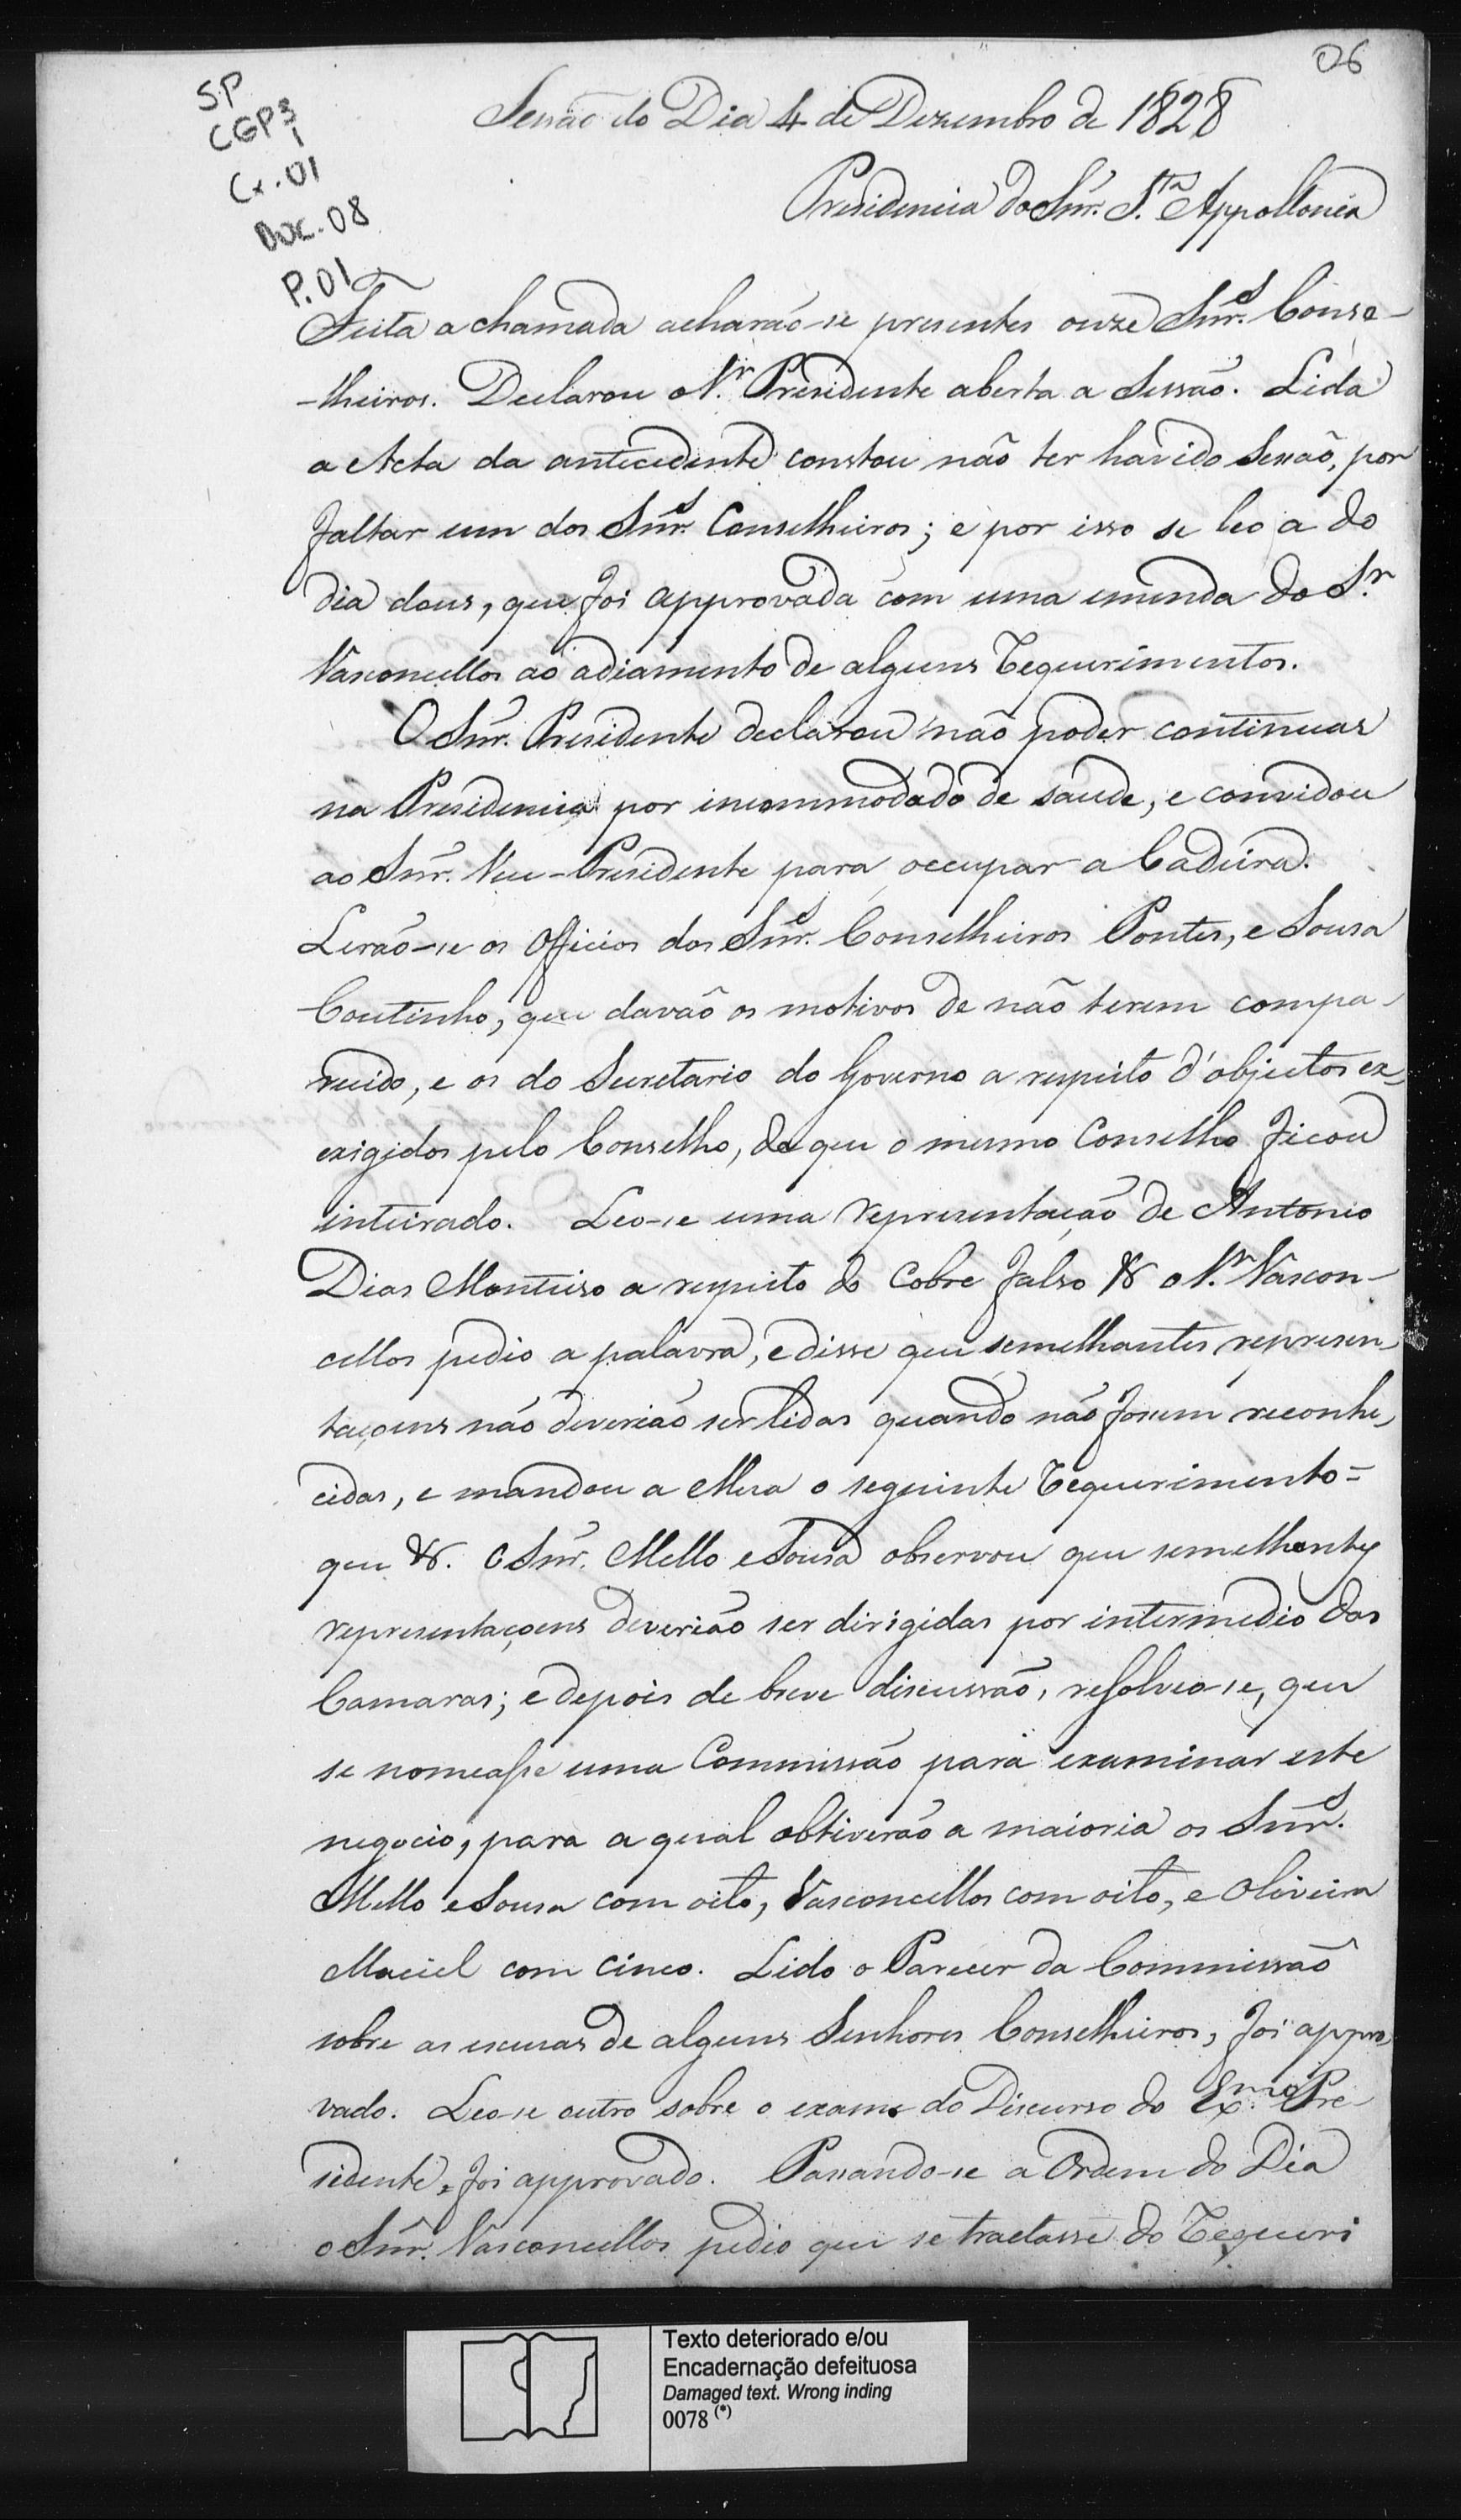 06
SP
CGP3
1
Cx. 01
Doc. 08
P. 01
Sessão do Dia 4 de Dezembro de 1828
Presidencia do Snr. S.ta Appollonia
Feita a chamada acharão-se presentes onze Snr.s Conse-
-lheiros. Declarou o S.r Presidente aberta a Sessão. Lida
a Acta da antecedente constou não ter havido Sessão, por
faltar um dos Snr.s Conselheiros; e por isso se leo a do
dia dous, que foi approvada com uma emenda do S.r
Vasconcellos ao adiamento de alguns Requerimentos.
O Snr. Presidente declarou não poder continuar
na Presidencia por incommodado de saude, e convidou
ao Snr. Vice-Presidente para occupar a Cadeira.
Lerão-se os Officios dos Snr.s Conselheiros Pontes, e Sousa
Coutinho, que davão os motivos de não terem compa-
recido, e os do Secretario do Governo a respeito d'objectos ex-
exigidos pelo Conselho, de que o mesmo Conselho ficou
inteirado. Leo-se uma representação de Antonio
Dias Monteiro a respeito do Cobre falso & o S.r Vascon-
cellos pedio a palavra, e disse que semelhantes represen-
taçoens não deverião ser lidas quando não fossem reconhe-
cidas, e mandou a Mesa o seguinte Requerimento=
que &. O Snr. Mello e Sousa observou que semelhantes
representaçoens deverião ser dirigidas por intermedio das
Camaras; e depois de breve discussão, resolveo-se, que
se nomeasse uma Commissão para examinar este
negocio, para a qual obtiverão a maioria os Snr.s
Mello e Sousa com oito, Vasconcellos com oito, e Oliveira
Maciel com cinco. Lido o Parecer da Commissão
sobre as escusas de alguns Senhores Conselheiros, foi appro-
vado. Leo-se outro sobre o exame do Discurso do Ex.mo Pre
sidente, foi approvado. Passando-se a Ordem do Dia
o Snr. Vasconcellos pedio que se tractasse do Requeri
Texto deteriorado e/ou
Encadernação defeituosa
Damaged text. Wrong inding
0078 (*)